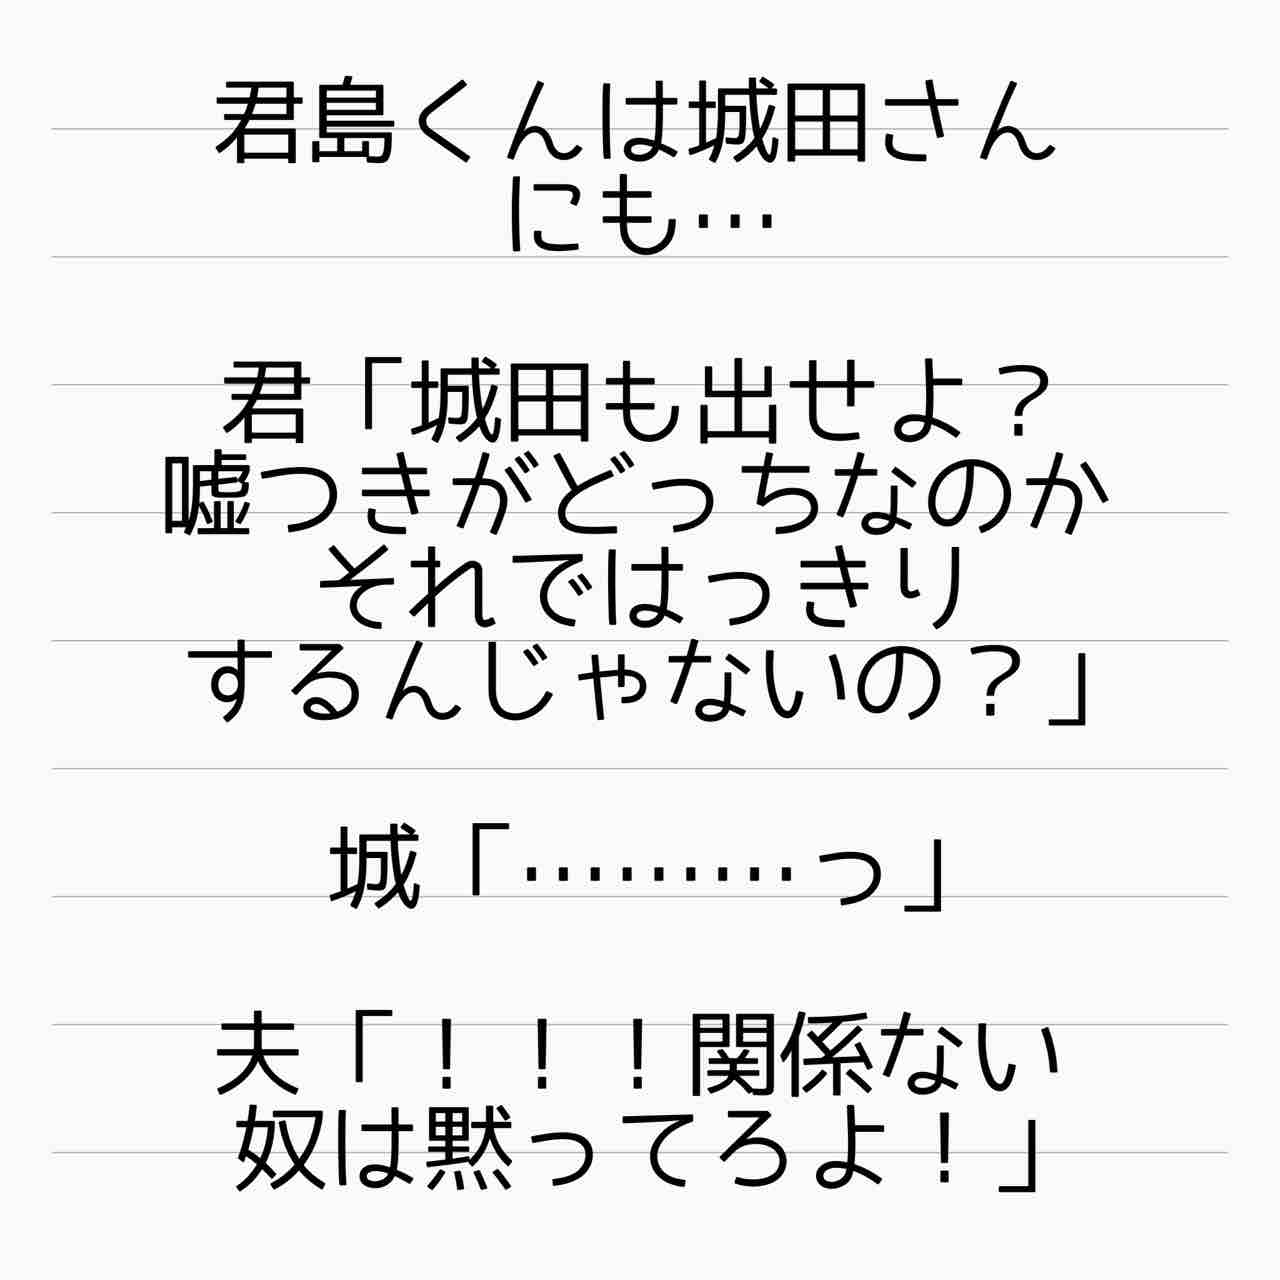 君島くんは城田さん
にも…
君「城田も出せよ？
嘘つきがどっちなのか
それではっきり
するんじゃないの？」
城「………っ」
夫「！！！関係ない
奴は黙ってろよ！」